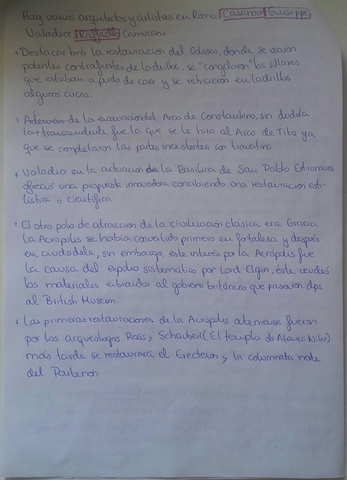 Hay varios arquitectos y artistas en Roma: Casanova, Giuseppe
Valadier, Raffaele Camuccini.
+ Destacar tmb la restauración del Coliseo, donde se usaron
potentes contrafuertes de ladrillo, se "congelaron" los sillares
que estaban a punto de caer y se rehicieron en ladrillos
algunos arcos.
+ Además de la excavación del Arco de Constantino, sin dudda
la + transcendente fue la que se le hizo al Arco de Tito ya
que se completaron las partes inexistentes con travertino
+ Valadier en la actuación de la Basílica de San Pablo Extramuros
ofreció una propuesta innovadora concibiendo una restauración esti-
lística o científica.
+ El otro polo de atracción de la civilización clásica era Grecia
La Acrópolis se había convertido primero en fortaleza y después
en ciudadela, sin embargo, este interés por la Acrópolis fue
la causa del expolio sistemático por Lord Elgin, éste vendió
los materiales al gobierno británico que pasaron dps
al British Museum.
+ Las primeras restauraciones de la Acrópolis ateniense fueron
por los arqueólogos Ross y Schaubert (El templo de Atenea Niké)
más tarde se restauraría el Erecteion y la columnata norte
del Partenón.